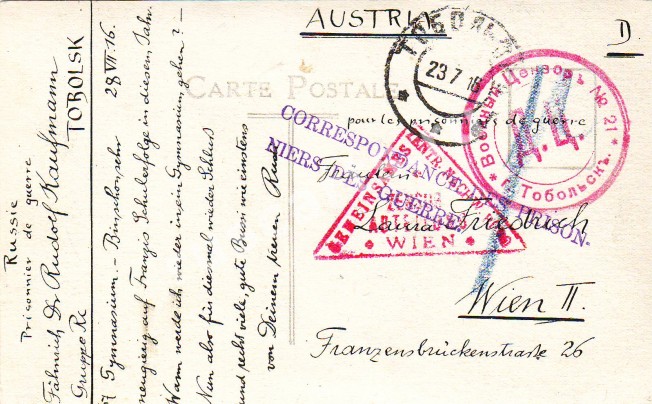 AUSTRIA
D
CARTE POSTALE
ТОБОЛЬСК
23 7 16
Военный Цензоръ № 21
Д.Ц.
г. Тобольскъ.
CORRESPONDANCE DES PRISON-
NIERS DES GUERRE.
pour les prisonniers de guerre
GEMEINSAMES ZENTR. NACHW.
WIEN
Fräulein
Laura Friedrich
Wien II.
Franzensbrückenstraße 26
Russie
Prisonnier de guerre
Fähnrich Dr Rudolf Kaufmann
Gruppe Rc
TOBOLSK
28 VII. 16.
Gymnasium. – Bin schon sehr
neugierig auf Franzis Schulerfolge in diesem Jahr.
Wann werde ich wieder in ein Gymnasium gehen? –
Nun aber für diesmal wieder Schluss
und recht viele, gute Bussi wie einstens
von Deinem treuen Rudi